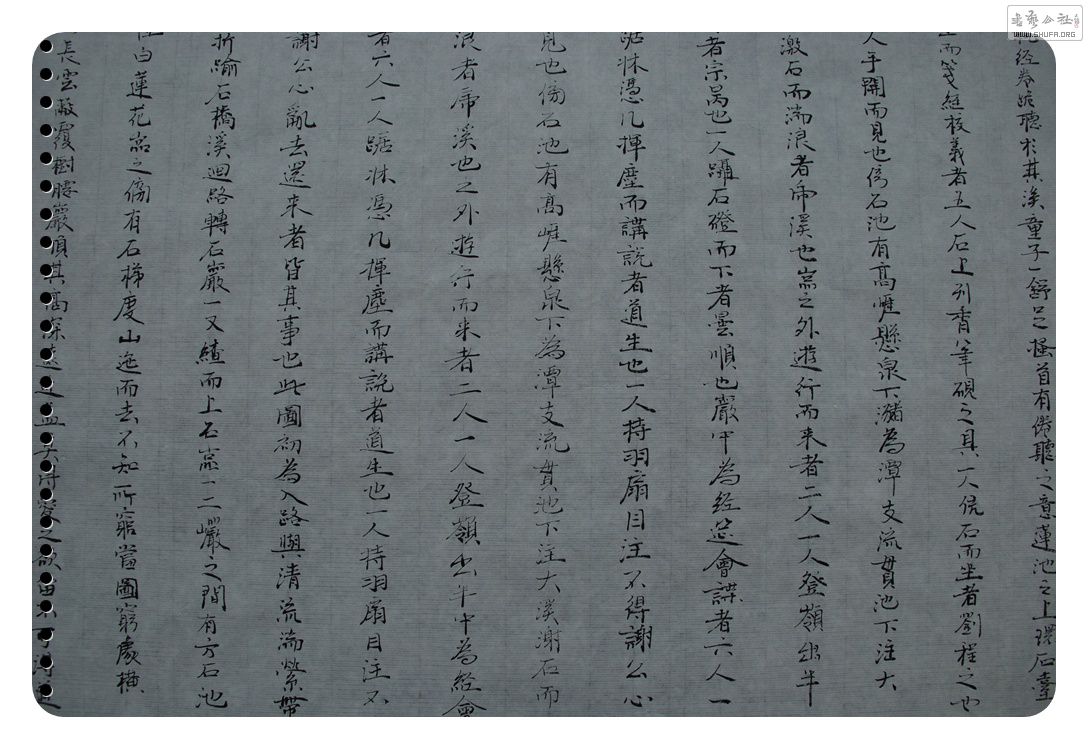 經卷跪聽於其溪童子一舒足搔首有倦聽之意蓮池之上環石臺
而箋經校義者五人石上列香筆硯之具一人俛石而坐者劉程之也
人手開而見也傍石池有高崖懸泉下瀦為潭支流貫池下注大
激石而湍浪者虎溪也嵓之外遊行而来者二人一人登嶺出半
者宗昺也一人躡石磴而下者曇順也巖中為經筵會講者六人一
踞牀憑几揮麈而講説者道生也一人持羽扇目注不得謝公心
見也傍石池有高崖懸泉下為潭支流貫池下注大溪湍石而
浪者虎溪也之外遊行而来者二人一人登嶺出半中為經會
者六人一人踞牀憑几揮麈而講説者道生也一人持羽扇目注不
謝公心亂去還来者皆其事也此圖初為入路與清流湍縈帶
折踰石橋溪迴路轉石巖一又而上石嵓一二巖之間有方石池
白蓮花嵓之傍有石梯度山迤而去不知所窮當圖窮處横
長雲蔽覆樹腰巖頂其高深遠近蓋莫得窺之欲留不可得
書藝公社
WWW.SHUFA.ORG